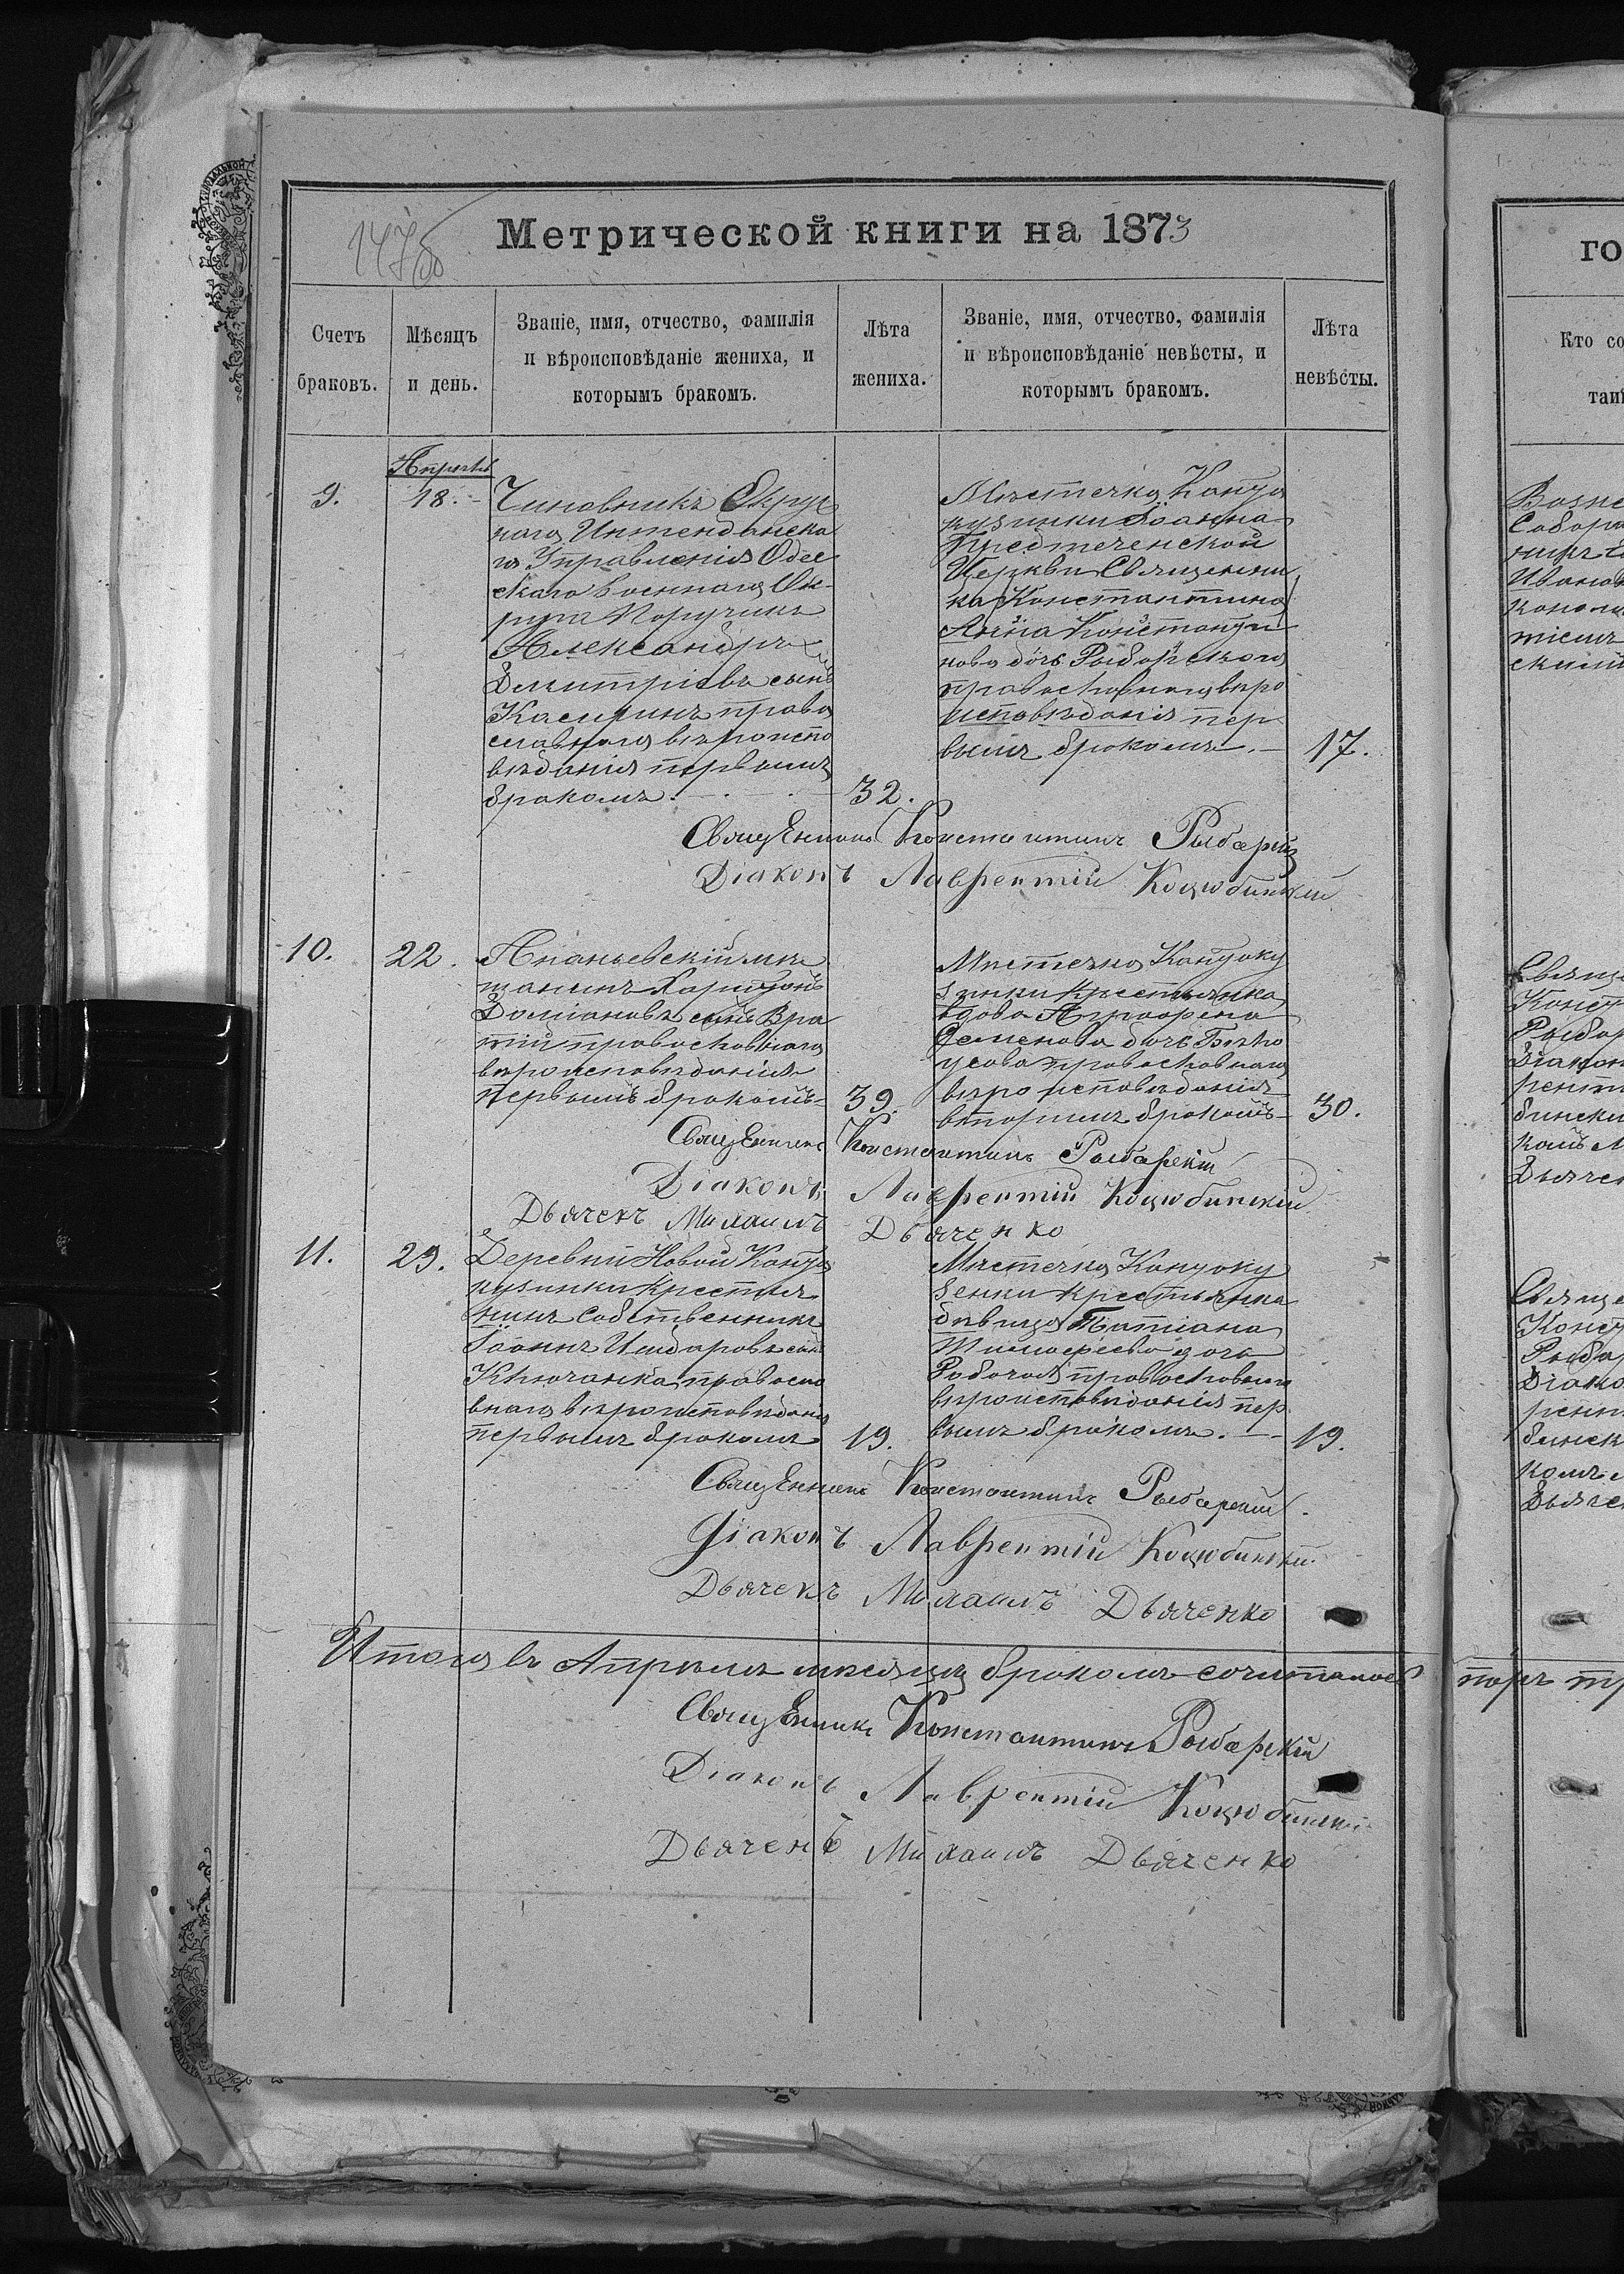 Метрической книги на 1873
Счетъ браковъ.
Мѣсяцъ и день.
Званіе, имя, отчество, фамилія
и вѣроисповѣданіе жениха, и
которымъ бракомъ.
Лѣта жениха.
Званіе, имя, отчество, фамилія
и вѣроисповѣданіе невѣсты, и
которымъ бракомъ.
Лѣта невѣсты.
го
Кто со
таи
Апрѣль
9.
18.
Чиновникъ Окруж
наго Интенданска
го Управленія Одес
скаго Военнаго Ок-
руга Поручикъ
Александръ
Димитріевъ сынъ
право
славнаго вѣроиспо
вѣданія первымъ
бракомъ.
32.
Мѣстечка Канто
кузинки Іоанна
Предтеченской
Церкви Священни
ка Константина
Анна Константи
нова дочь Рыбарскаго
православнаго вѣро
исповѣданія пер
вымъ бракомъ.
17.
Священникъ Константинъ Рыбарскій
Діаконъ Лаврентій Коцюбинскій
10.
22.
Ананьевскій мѣ
щанинъ Харитонъ
Даміановъ сынъ Вра
тій православнаго
вѣроисповѣданія
первымъ бракомъ
39.
Мѣстечка Кантоку
зинки крестьянка
вдова
Семенова дочь
усова православнаго
вѣроисповѣданія
вторымъ бракомъ
30.
Священникъ Константинъ Рыбарскій
Діаконъ Лаврентій Коцюбинскій
Дьячекъ Михаилъ Дьяченко
11.
29.
Деревни Новой Канто
кузинки Крестья
нинъ собственникъ
Іоаннъ сынъ
правосла
внаго вѣроисповѣданія
первымъ бракомъ
19.
Мѣстечка Кантоку
зенки крестьянка
дѣвица Татіана
Тимофеева дочь
Рабочая православнаго
вѣроисповѣданія пер
вымъ бракомъ.
19.
Священникъ Константинъ Рыбарскій
Діаконъ Лаврентій Коцюбинскій
Дьячекъ Михаилъ Дьяченко
Итого въ Апрѣлѣ мѣсяцѣ бракомъ сочеталось паръ тр
Священникъ Константинъ Рыбарскій
Діаконъ Лаврентій Коцюбинскій
Дьячекъ Михаилъ Дьяченко